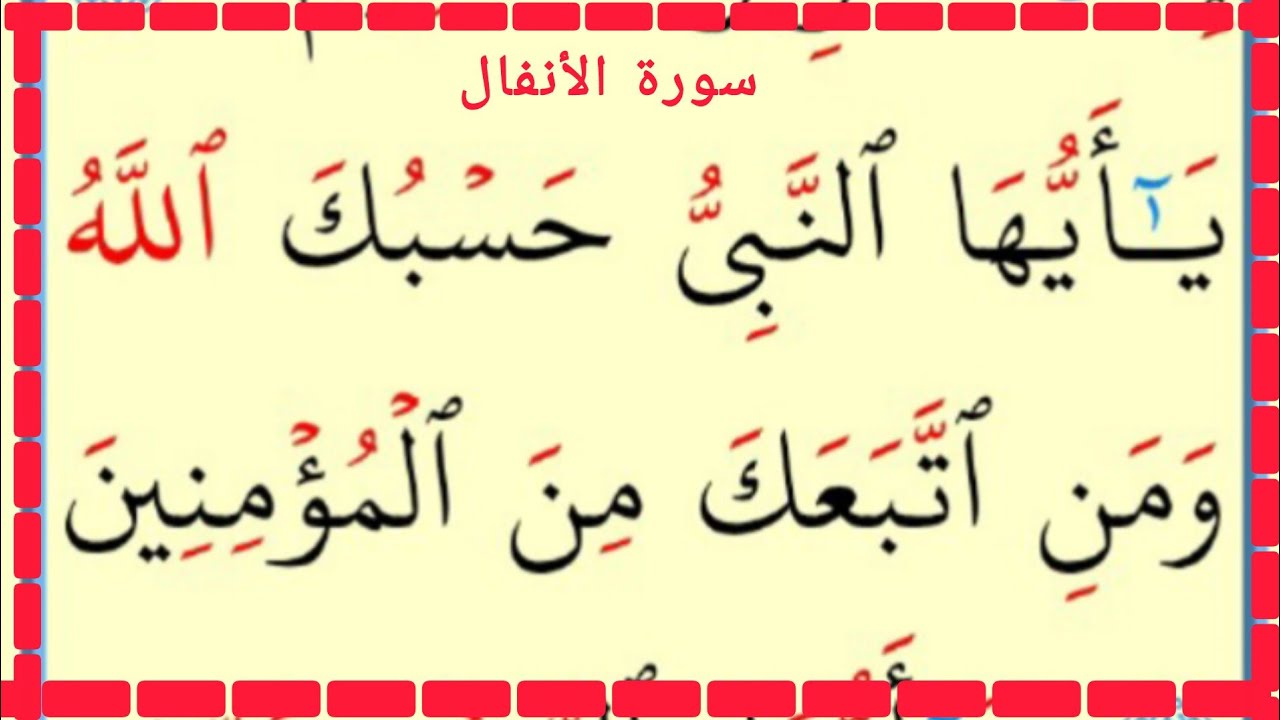 سورة الأنفال
يَـٰٓأَيُّهَا ٱلنَّبِىُّ حَسْبُكَ ٱللَّهُ
وَمَنِ ٱتَّبَعَكَ مِنَ ٱلْمُؤْمِنِينَ